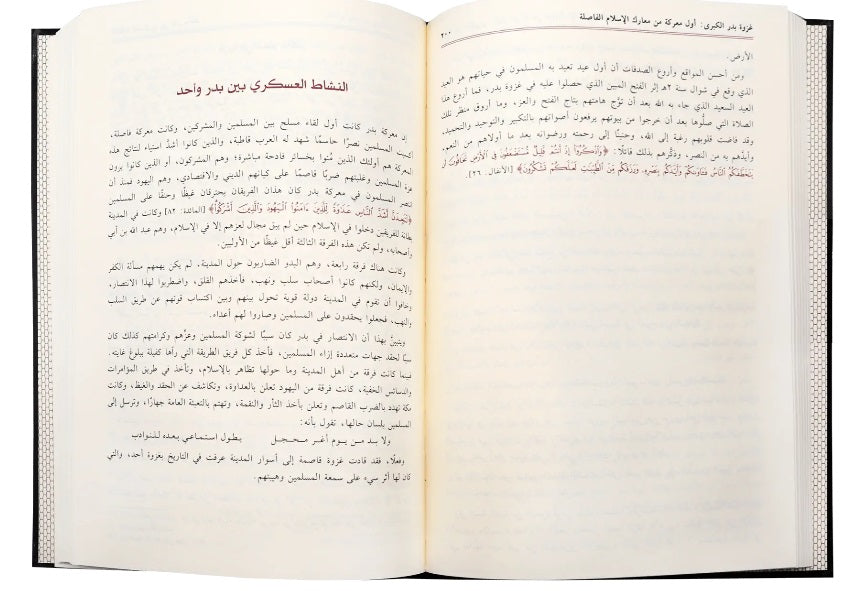 غزوة بدر الكبرى: أول معركة من معارك الإسلام الفاصلة
٢٠٠
الأرض.
ومن أحسن المواقع وأروع الصدفات أن أول عيد تعيد به المسلمون في حياتهم هو العيد
الذي وقع في شوال سنة ٢هـ إثر الفتح المبين الذي حصلوا عليه في غزوة بدر، فما أروع هذا
العيد السعيد الذي جاء به الله بعد أن توَّج هامتهم بتاج الفتح والعز، وما أروق منظر تلك
الصلاة التي صلُّوها بعد أن خرجوا من بيوتهم يرفعون أصواتهم بالتكبير والتوحيد والتحميد،
وقد فاضت قلوبهم رغبة إلى الله، وحنينًا إلى رحمته ورضوانه بعد ما أولاهم من النعم،
وأيدَّهم به من النصر، وذكَّرهم بذلك قائلًا: ﴿وَاذْكُرُوٓا۟ إِذْ أَنتُمْ قَلِيلٌ مُّسْتَضْعَفُونَ فِى ٱلْأَرْضِ تَخَافُونَ أَن
يَتَخَطَّفَكُمُ ٱلنَّاسُ فَـَٔاوَىٰكُمْ وَأَيَّدَكُم بِنَصْرِهِۦ وَرَزَقَكُم مِّنَ ٱلطَّيِّبَـٰتِ لَعَلَّكُمْ تَشْكُرُونَ﴾ [الأنفال: ٢٦].
النشاط العسكري بين بدر وأحد
إن معركة بدر كانت أول لقاء مسلح بين المسلمين والمشركين، وكانت معركة فاصلة،
أكسبت المسلمين نصرًا حاسمًا شهد له العرب قاطبة، والذين كانوا أشدَّ استياء لنتائج هذه
المعركة هم أولئك الذين مُنوا بخسائر فادحة مباشرة؛ وهم المشركون، أو الذين كانوا يرون
عزة المسلمين وغلبتهم ضربًا قاصمًا على كيانهم الديني والاقتصادي، وهم اليهود فمنذ أن
انتصر المسلمون في معركة بدر كان هذان الفريقان يحترقان غيظًا وحنقًا على المسلمين
﴿لَتَجِدَنَّ أَشَدَّ ٱلنَّاسِ عَدَٰوَةً لِّلَّذِينَ ءَامَنُوا۟ ٱلْيَهُودَ وَٱلَّذِينَ أَشْرَكُوا۟﴾ [المائدة: ٨٢] وكانت في المدينة
بطانة للفريقين دخلوا في الإسلام حين لم يبق مجال لعزهم إلا في الإسلام، وهم عبد الله بن أبي
وأصحابه، ولم تكن هذه الفرقة الثالثة أقل غيظًا من الأوليين.
وكانت هناك فرقة رابعة، وهم البدو الضاربون حول المدينة، لم يكن يهمهم مسألة الكفر
والإيمان، ولكنهم كانوا أصحاب سلب ونهب، فأخذهم القلق، واضطربوا لهذا الانتصار،
وخافوا أن تقوم في المدينة دولة قوية تحول بينهم وبين اكتساب قوتهم عن طريق السلب
والنهب، فجعلوا يحقدون على المسلمين وصاروا لهم أعداء.
ويتبينَّ بهذا أن الانتصار في بدر كان سببًا لشوكة المسلمين وعزِّهم وكرامتهم كذلك كان
سببًا لحقد جهات متعددة إزاء المسلمين، فأخذ كل فريق الطريقة التي رأها كفيلة ببلوغ غايته.
فبينما كانت فرقة من أهل المدينة وما حولها تظاهر بالإسلام، وتأخذ في طريق المؤامرات
والدسائس الخفية، كانت فرقة من اليهود تعلن بالعداوة، وتكاشف عن الحقد والغيظ، وكانت
مكة تهدد بالضرب القاصم وتعلن بأخذ الثأر والنقمة، وتهتم بالتعبئة العامة جهارًا، وترسل إلى
المسلمين بلسان حالها، تقول بأنه:
ولا بد من يوم أغر محجل بطول استماعي بعده للنوادب
وفعلًا، فقد قادت غزوة قاصمة إلى أسوار المدينة عرفت في التاريخ بغزوة أحد، والتي
كان لها أثر سيء على سمعة المسلمين وهيبتهم.